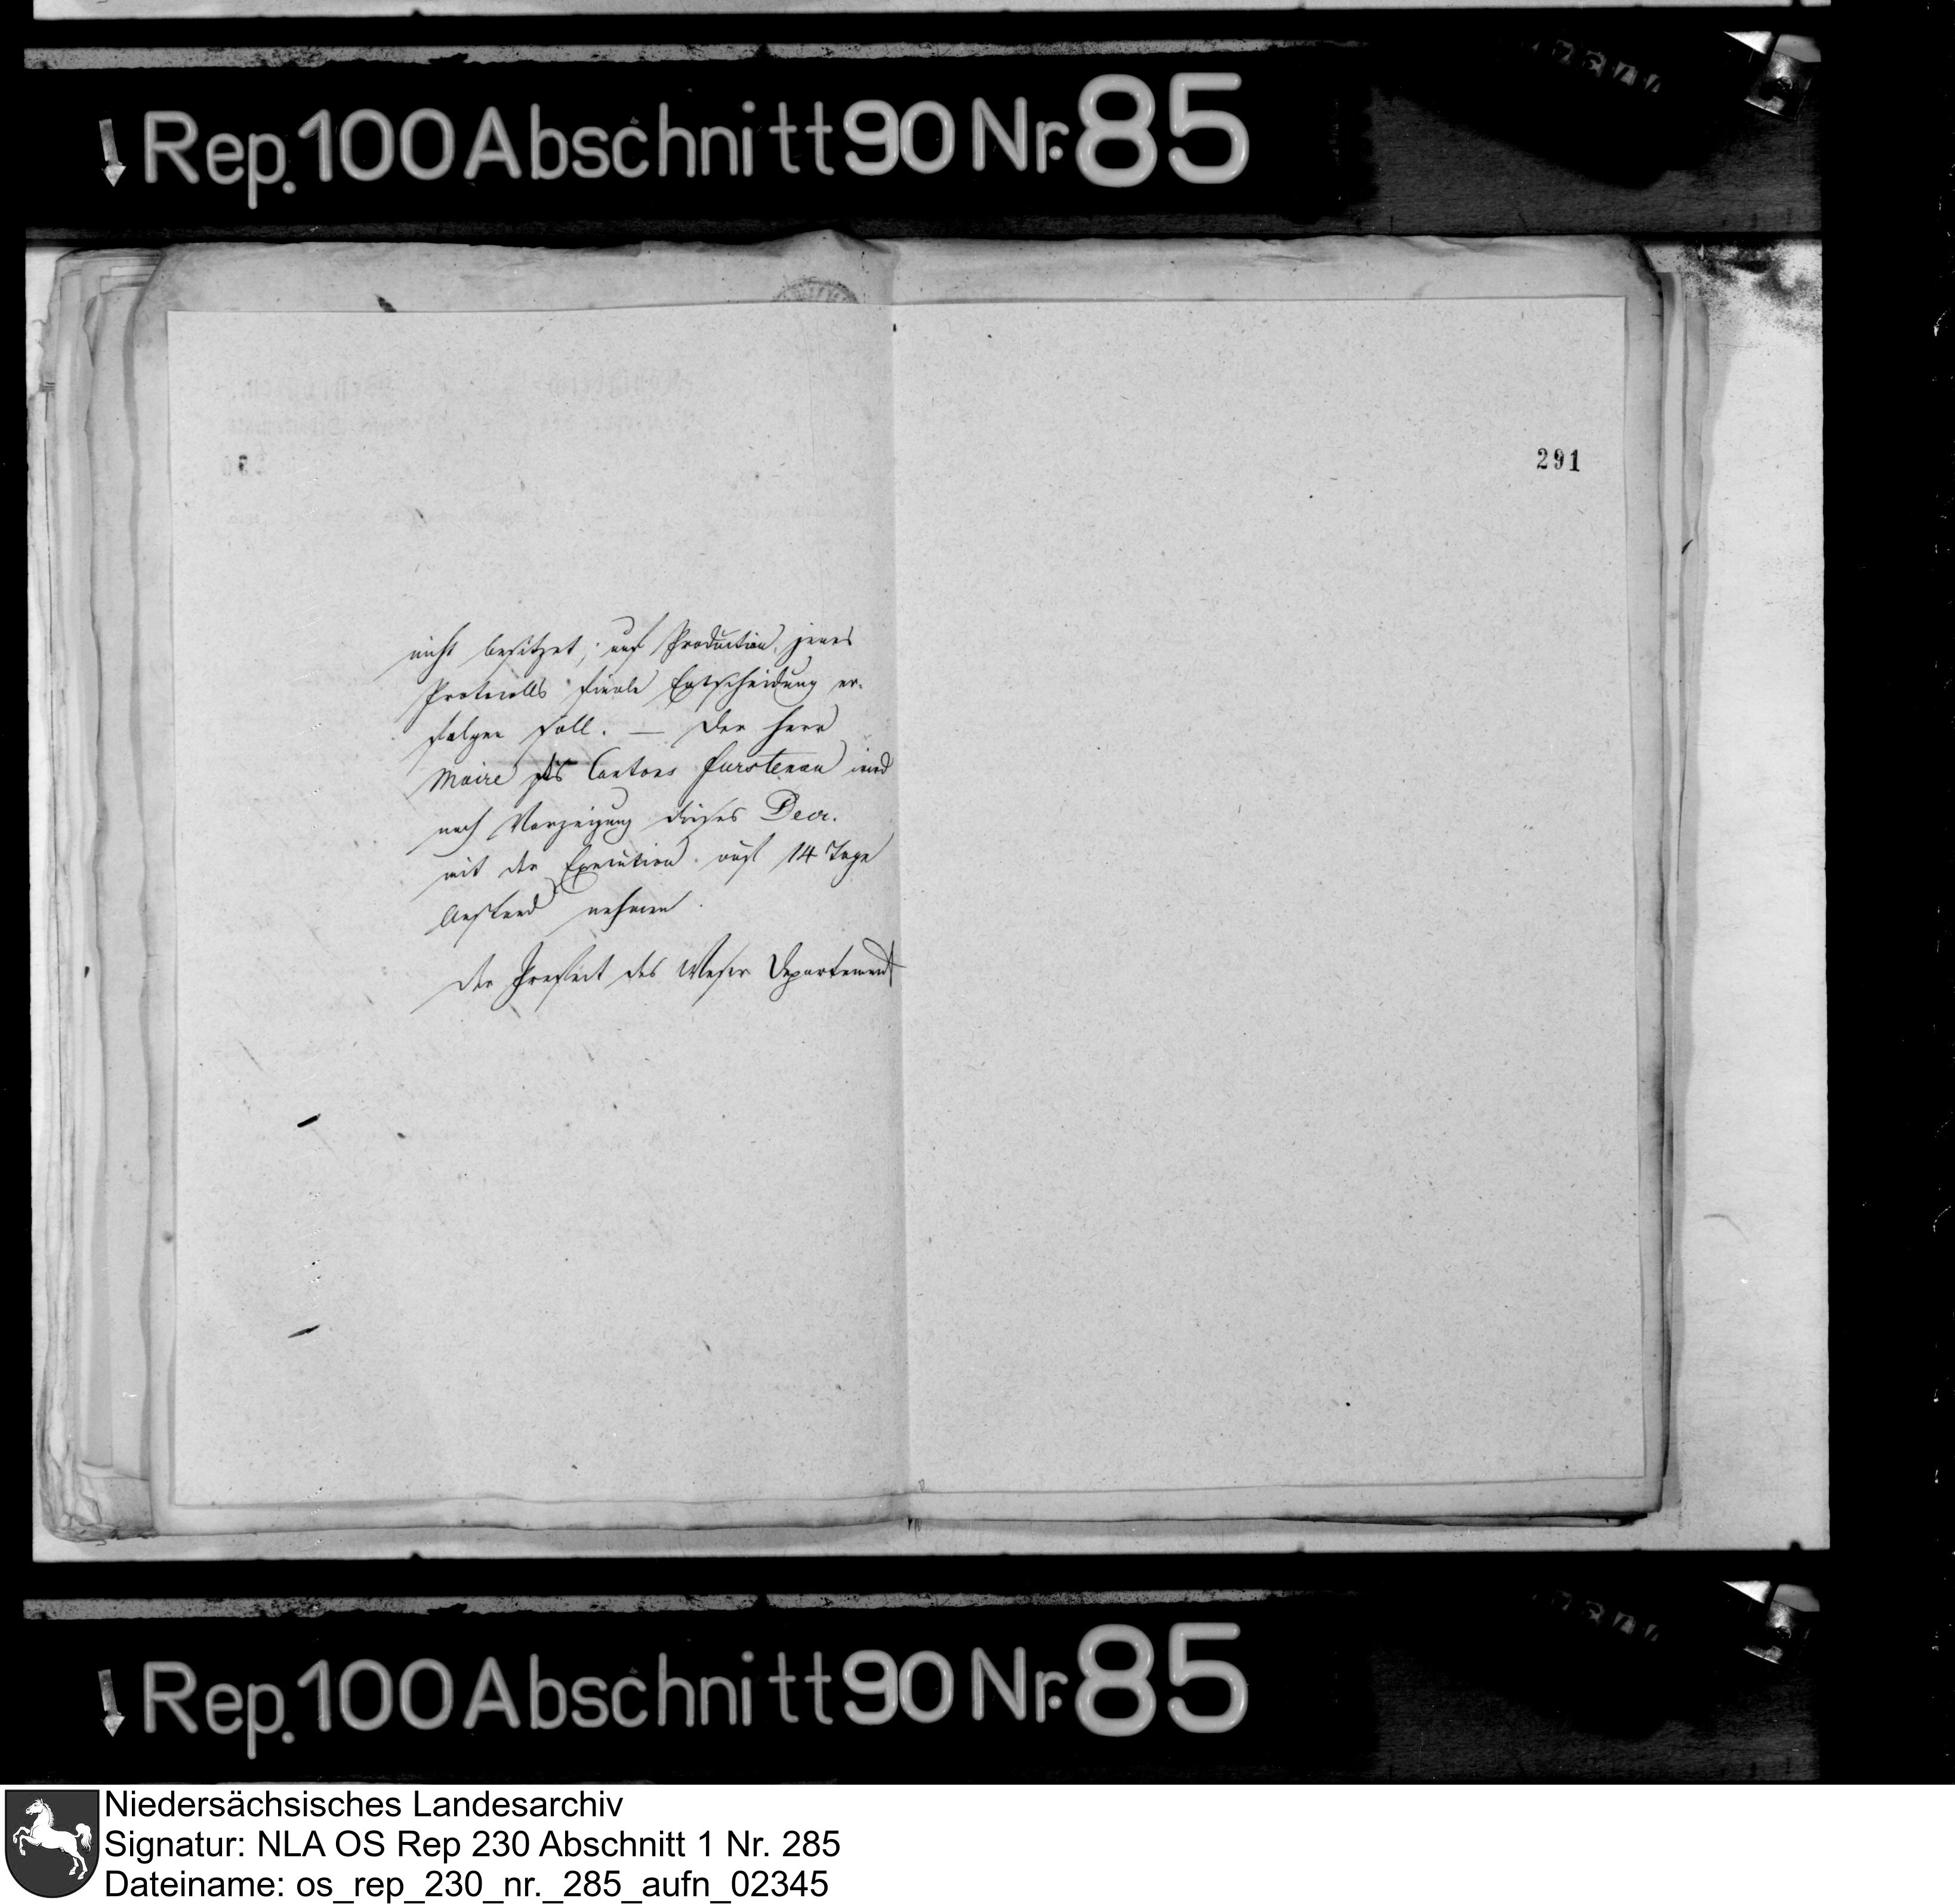 Rep. 100 Abschnitt 90 Nr. 85
291
nicht besitzet; auf Production jenes
Protocolls finale Entscheidung er-
folgen soll. — Der Herr
Maire des Cantons Furstenau wird
nach Vorzeigung dieses Decr.
mit der Execution auf 14 Tage
Anstand nehmen.
Der Prefect des Weser Departement
Rep. 100 Abschnitt 90 Nr. 85
Niedersächsisches Landesarchiv
Signatur: NLA OS Rep 230 Abschnitt 1 Nr. 285
Dateiname: os_rep_230_nr._285_aufn_02345